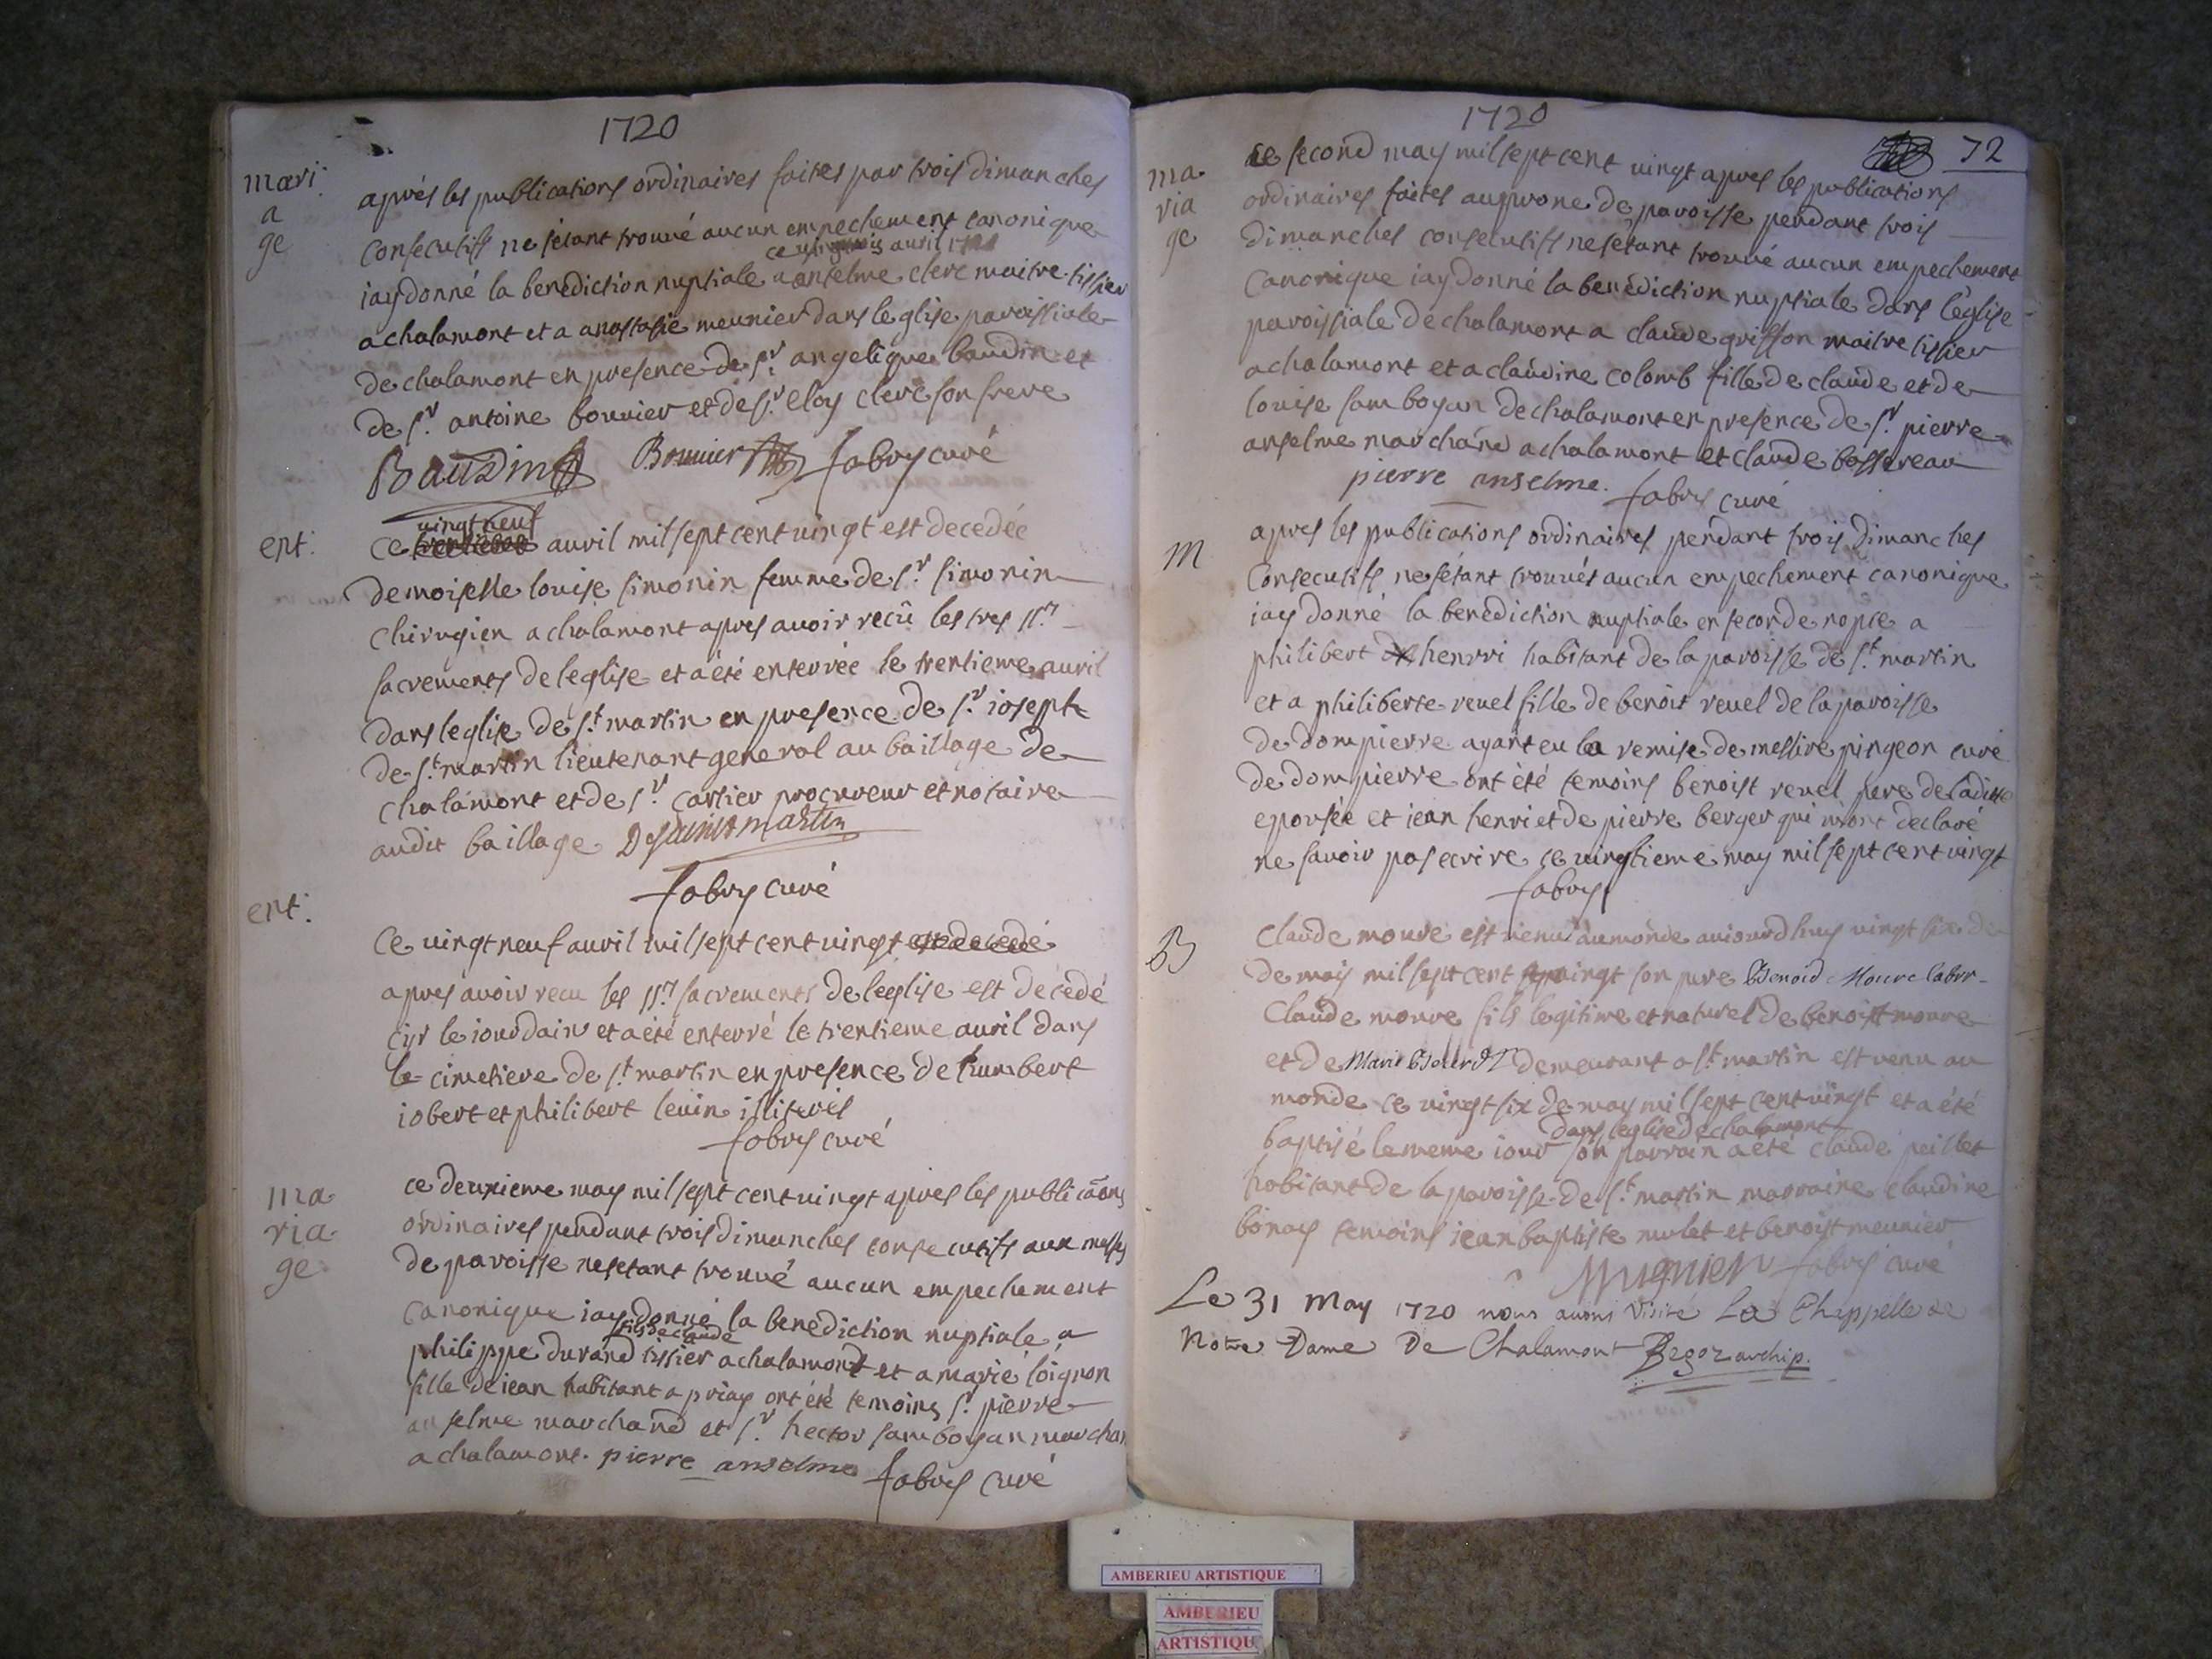 1720
mari
a
ge
aprés les publications ordinaires faites par trois dimanches
consecutifs ne setant trouvé aucun empechement canonique
ce avril
iay donné la benediction nuptiale a anselme clerc maitre tissier
a chalamont et a anastasie meunier dans leglise paroissiale
de chalamont en presence de sr. angelique baudin et
de sr. antoine bouvier et de sr. eloy clerc son frere
Baudin Bouvier fabry curé
ent:
vingt neuf
ce avril mil sept cent vingt est decedée
demoiselle louise simonin femme de sr. simonin
chirugien a chalamont apres avoir recû les tres sts
sacrements de leglise et a été enterrée le trentieme avril
dans leglise de st martin en presence de sr. ioseph
de st martin lieutenant general au baillage de
chalamont et de sr. cartier procureur et notaire
audit baillage De saint martin
fabry curé
ent:
Ce vingt neuf avril mil sept cent vingt est decedé
apres avoir recu les sts sacrements de leglise est décédé
cyr le iourdain et a été enterré le trentieme avril dans
le cimetiere de st martin en presence de humbert
iobert et philibert levin illiterés
fabry curé
ma
ria
ge
ce deuxieme may mil sept cent vingt apres les publicãons
ordinaires pendant trois dimanches consecutifs aux messes
de paroisse ne setant trouvé aucun empechement
canonique iay donné la benediction nuptiale a
fils de claude
philippe durand tissier a chalamont et a marie loignon
fille de iean habitant a priay ont été temoins sr. pierre
anselme marchand et sr. hector samboyan marchan
a chalamont. pierre anselme fabry curé
1720
72
ma
ria
ge
ce second may mil sept cent vingt apres les publications
ordinaires faites au prone de paroisse pendant trois
dimanches consecutifs ne setant trouvé aucun empechement
canonique iay donné la benédiction nuptiale dans l'église
paroissiale de chalamont a claude grisson maitre tissier
a chalamont et a claudine colomb fille de claude et de
louise samboyan de chalamont en presence de sr. pierre
anselme marchand a chalamont et claude bassereau
pierre anselme. fabry curé
m
apres les publications ordinaires pendant trois dimanches
consecutifs ne sétant trouvés aucun empechement canonique
iay donné la benediction nuptiale en seconde nopce a
philibert henrri habitant de la paroisse de st martin
et a philiberte revel fille de benoit revel de la paroisse
de dompierre ayant eu la remise de messire pingeon curé
de dompierre ont été temoins benoist revel pere de ladite
epousée et iean henri et de pierre berger qui mont declaré
ne savoir pas ecrire ce vingtieme may mil sept cent vingt
fabry
B
Claude moure est venu au monde auiourdhuy vingt six de
de mois mil sept cent vingt son pere Benoid Moure labr
Claude moure fils legitime et naturel de benoist moure
et de Marie demeurant a st martin est venu au
monde ce vingt six de may mil sept cent vingt et a été
dans leglise de chalamont
baptisé le meme iour son parrain a été claude peillet
habitant de la paroisse de st martin marraine claudine
bonay temoins iean baptiste mulet et benoist meunier
Mugnier fabry curé
Le 31 May 1720 nous avons Visité La Chappelle de
Notre Dame De Chalamont Begoz archip.
AMBERIEU ARTISTIQUE
AMBERIEU
ARTISTIQU